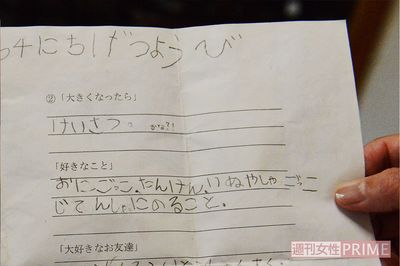 4にちげつようび
②「大きくなったら」
けいさつ。かな?!
「好きなこと」
おにごっこ。たんけん。いぬやしゃごっこ
じてんしゃにのること。
「大好きなお友達」
週刊女性PRIME